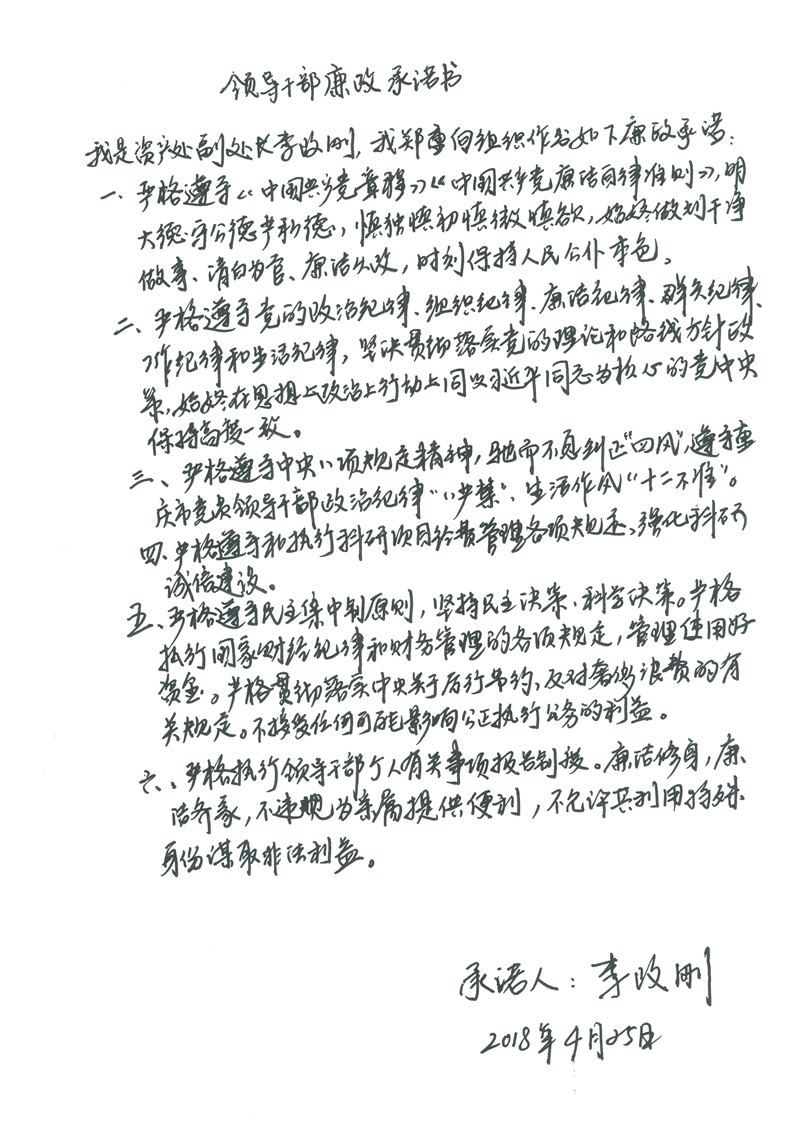 领导干部廉政承诺书
我是资产处副处长李政刚,我郑重向组织作出如下廉政承诺:
一、严格遵守《中国共产党章程》《中国共产党廉洁自律准则》,明
大德守公德严私德,慎独慎初慎微慎欲,始终做到干净
做事、清白为官、廉洁从政,时刻保持人民公仆本色。
二、严格遵守党的政治纪律、组织纪律、廉洁纪律、群众纪律、
工作纪律和生活纪律,坚决贯彻落实党的理论和路线方针政
策,始终在思想上政治上行动上同以习近平同志为核心的党中央
保持高度一致。
三、严格遵守中央八项规定精神,驰而不息纠正“四风”,遵守重
庆市党员领导干部政治纪律“八严禁”、生活作风“十二不准”。
四、严格遵守和执行科研项目经费管理各项规定、强化科研
诚信建设。
五、严格遵守民主集中制原则,坚持民主决策、科学决策。严格
执行国家财经纪律和财务管理的各项规定,管理使用好
资金。严格贯彻落实中央关于厉行节约、反对奢侈浪费的有
关规定。不接受任何可能影响公正执行公务的利益。
六、严格执行领导干部个人有关事项报告制度。廉洁修身,廉
洁齐家,不违规为亲属提供便利,不允许其利用特殊
身份谋取非法利益。
承诺人:李政刚
2018年4月25日